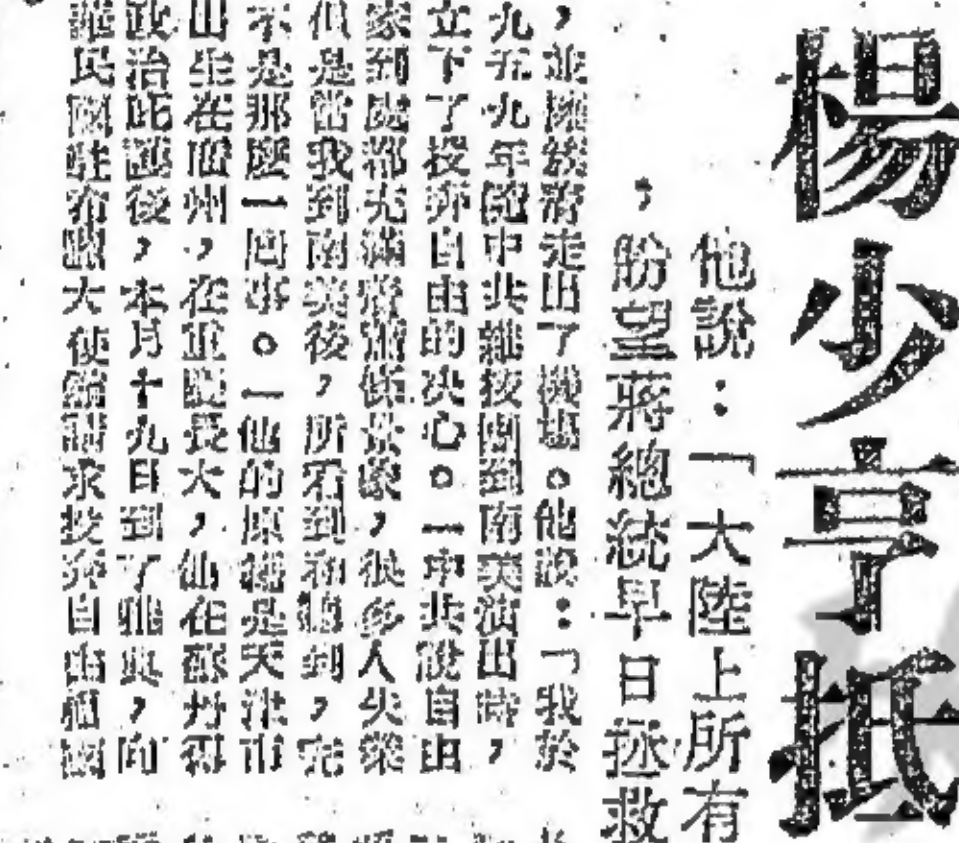 楊少亭抵
他說：「大陸上所有
，盼望蔣總統早日拯救
，並陳敍着走出了機場。他說：「我於
九五九年隨中共雜技團到南美演出時，
立下了投奔自由的決心。「中共說自由
家到處都充滿着蕭條景象，很多人失業
但是當我到南美後，所看到和聽到，完
不是那麼一回事。」他的原籍是天津市
出生在廣州，在重慶長大，他在蘇丹得
政治庇護後，本月十九日到了雅典，向
華民國駐布 大使館請求投奔自由祖國